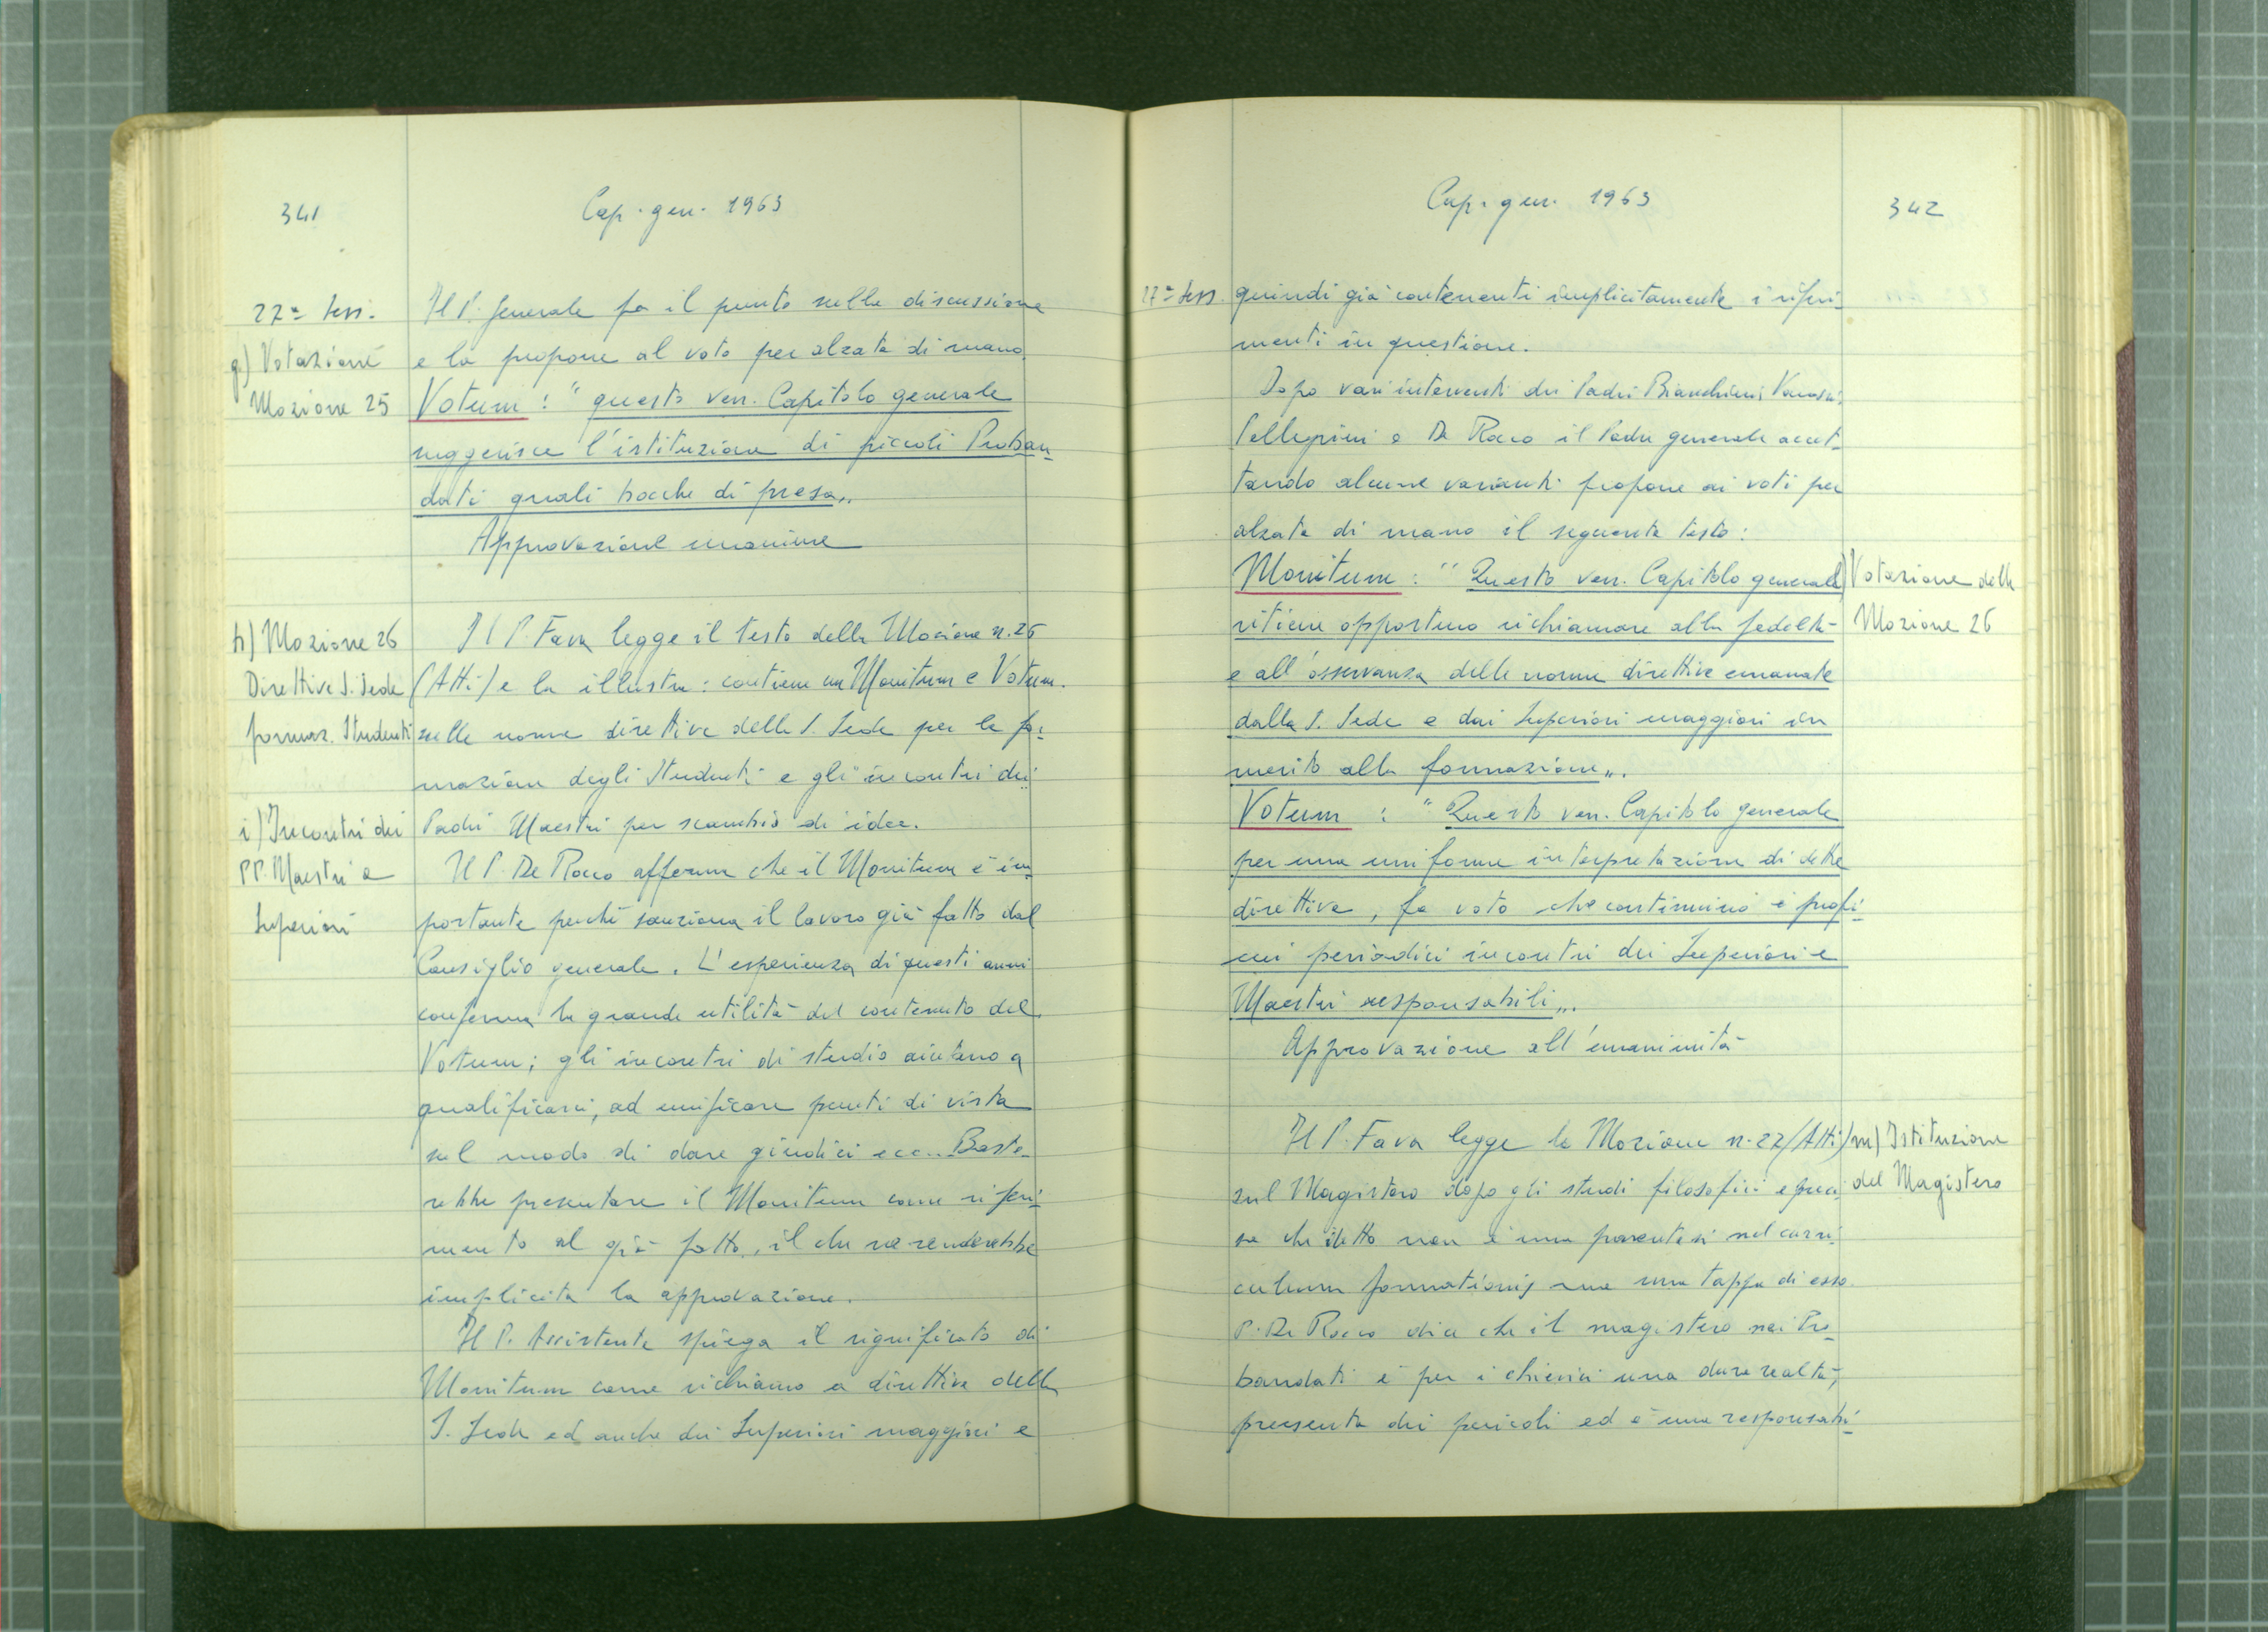 341
Cap. gen. 1963
22ª sess.
g) Votazione
Mozione 25
Il P. Generale fa il punto sulla discussione
e la propone al voto per alzata di mano.
Votum: " questo ven. Capitolo generale
suggerisce l'istituzione di piccoli Proban-
dati quali bocche di presa„.
Approvazione unanime
h) Mozione 26
Direttive S. Sede
formaz. Studenti
Il P. Fava legge il testo della Mozione n. 26
(Atti) e la illustra: contiene un Monitum e Votum
sulle norme direttive della S. Sede per la for-
mazione degli Studenti e gli incontri dei
i) Incontri dei
PP. Maestri e
Superiori
Padri Maestri per scambio di idee.
Il P. De Rocco afferma che il Monitum è im-
portante perché sanziona il lavoro già fatto dal
Consiglio generale. L'esperienza di questi anni
conferma la grande utilità del contenuto del
Votum; gli incontri di studio aiutano a
qualificarsi, ad unificare punti di vista
sul modo di dare giudizi ecc... Baste-
rebbe presentare il Monitum come riferi-
mento al già fatto, il che ne renderebbe
implicita la approvazione.
Il P. Assistente spiega il significato di
Monitum come richiamo a direttive della
S. Sede ed anche dei Superiori maggiori e
Cap. gen. 1963
342
22ª sess.
quindi già contenenti implicitamente i riferi-
menti in questione.
Dopo vari interventi dei Padri Bianchini,
Pellegrini e De Rocco il Padre generale accet-
tando alcune varianti propone ai voti per
alzata di mano il seguente testo:
Monitum: " Questo ven. Capitolo generale
ritiene opportuno richiamare alla fedeltà
e all'osservanza delle norme direttive emanate
dalla S. Sede e dai Superiori maggiori in
merito alla formazione„.
l) Votazione della
Mozione 26
Votum: " Questo ven. Capitolo generale
per una uniforme interpretazione di dette
direttive, fa voto che continuino i profi-
cui periodici incontri dei Superiori e
Maestri responsabili„.
Approvazione all'unanimità
Il P. Fava legge la Mozione n. 27 (Atti)
m) Istituzione
del Magistero
sul Magistero dopo gli studi filosofici e preci-
sa che detto non è una parentesi nel curri-
culum formationis ma una tappa di esso.
P. De Rocco dice che il magistero nei Pro-
bandati è per i chierici una dura realtà,
presenta dei pericoli ed è una responsabi-